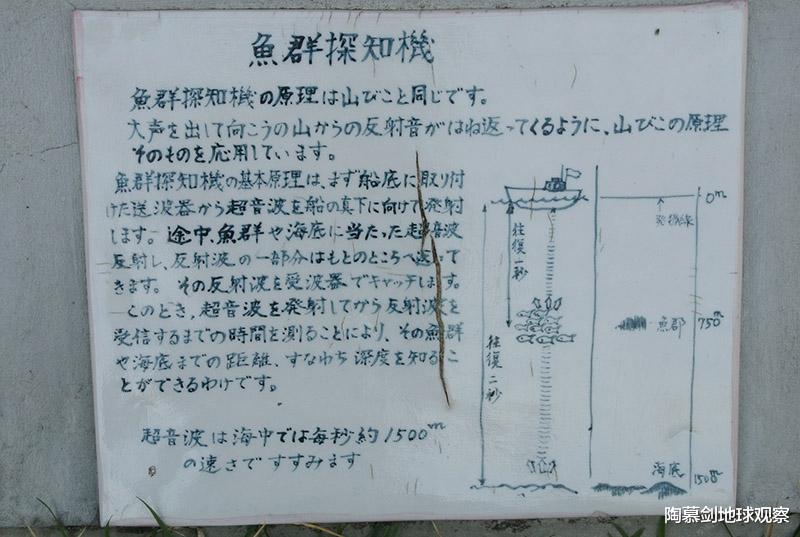 魚群探知機
魚群探知機の原理は山びこと同じです。
大声を出して向こうの山からの反射音がはね返ってくるように、山びこの原理
そのものを応用しています。
魚群探知機の基本原理は、まず船底に取り付
けた送波器から超音波を船の真下に向けて発射
します。途中、魚群や海底に当たった超音波
反射し、反射波の一部分はもとのところへ返って
きます。その反射波を受波器でキャッチします。
このとき、超音波を発射してから反射波を
受信するまでの時間を測ることにより、その魚群
や海底までの距離、すなわち深度を知るこ
とができるわけです。
超音波は海中では毎秒約1500m
の速さですすみます
往復一秒
往復二秒
0m
発振線
魚郡
750m
海底
150m
陶慕剑地球观察